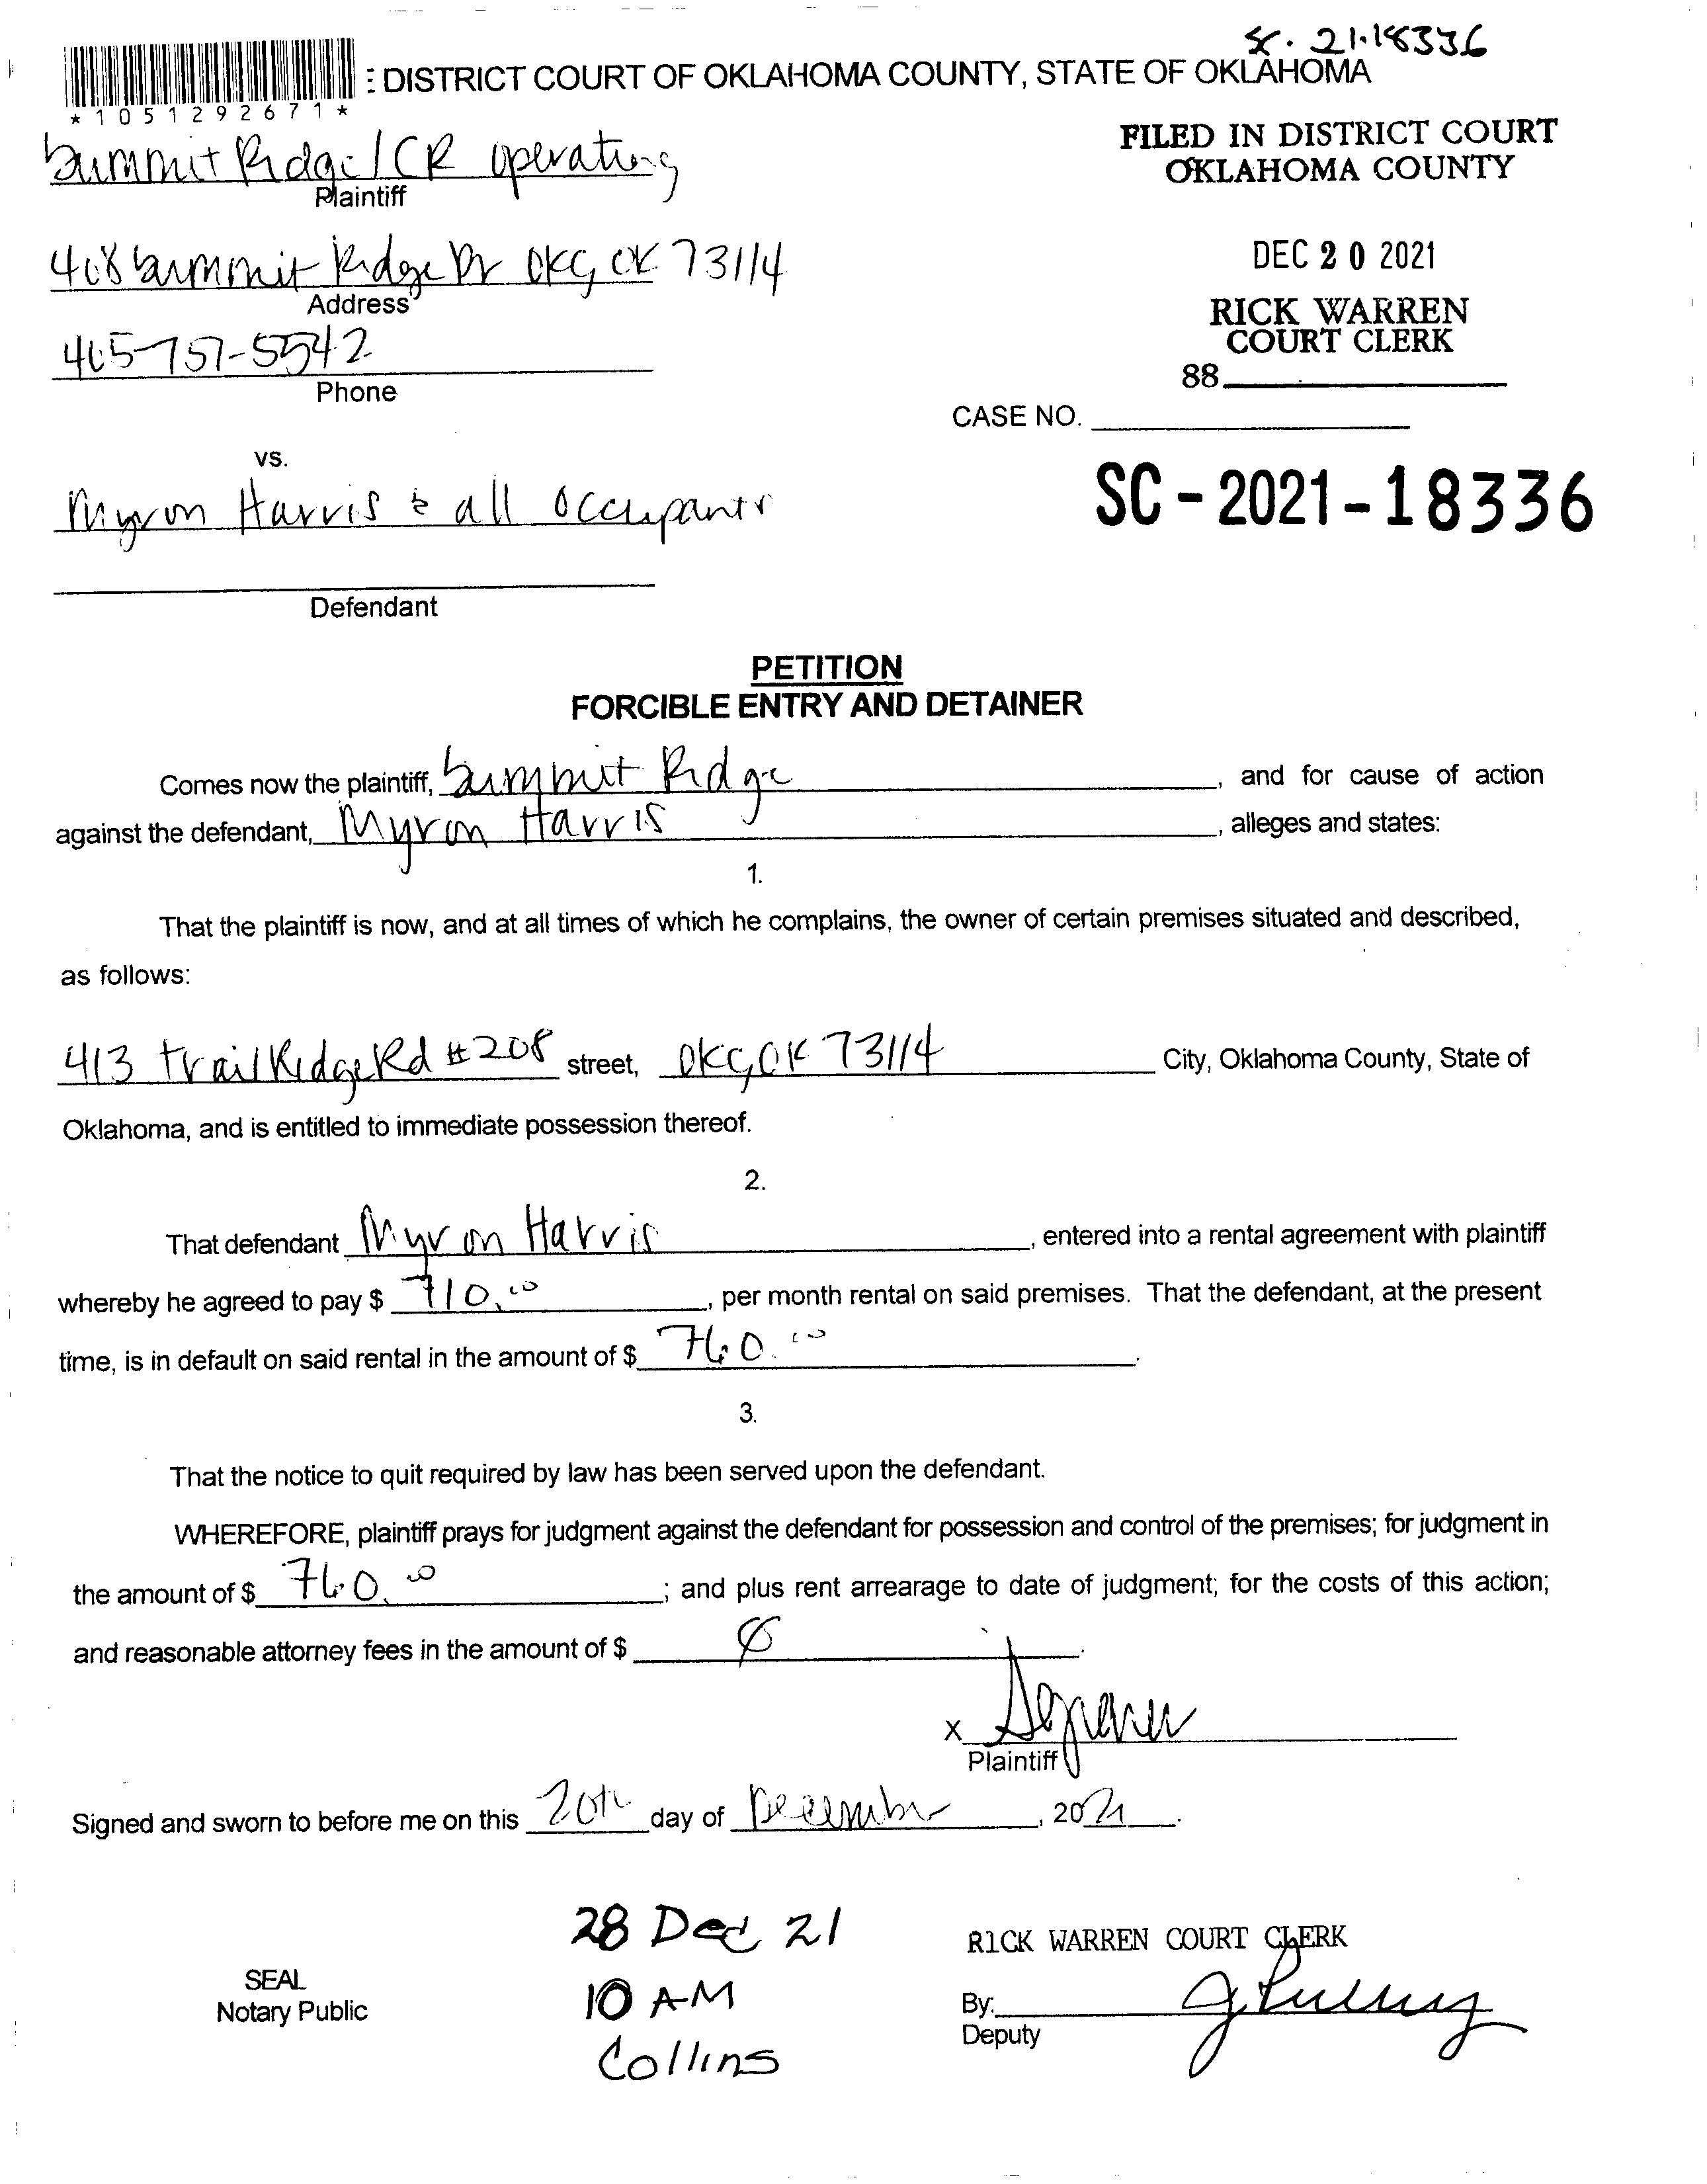 SC. 21-18336
: DISTRICT COURT OF OKLAHOMA COUNTY, STATE OF OKLAHOMA
*1051292671*
Summit Ridge / CR operating
Plaintiff
FILED IN DISTRICT COURT
OKLAHOMA COUNTY
408 Summit Ridge Dr OKC, OK 73114
Address
DEC 20 2021
RICK WARREN
COURT CLERK
405-757-5542
Phone
88
CASE NO.
vs.
SC-2021-18336
Myron Harris & all occupants
Defendant
PETITION
FORCIBLE ENTRY AND DETAINER
Comes now the plaintiff, Summit Ridge, and for cause of action
against the defendant, Myron Harris, alleges and states:
1.
That the plaintiff is now, and at all times of which he complains, the owner of certain premises situated and described,
as follows:
413 Trail Ridge Rd #208 street, OKC, OK 73114 City, Oklahoma County, State of
Oklahoma, and is entitled to immediate possession thereof.
2.
That defendant Myron Harris, entered into a rental agreement with plaintiff
whereby he agreed to pay $ 710.00, per month rental on said premises. That the defendant, at the present
time, is in default on said rental in the amount of $ 760.00.
3.
That the notice to quit required by law has been served upon the defendant.
WHEREFORE, plaintiff prays for judgment against the defendant for possession and control of the premises; for judgment in
the amount of $ 760.00; and plus rent arrearage to date of judgment; for the costs of this action;
and reasonable attorney fees in the amount of $
X
Plaintiff
Signed and sworn to before me on this 20th day of December, 2021.
28 Dec 21
10 AM
Collins
RICK WARREN COURT CLERK
SEAL
Notary Public
By:
Deputy